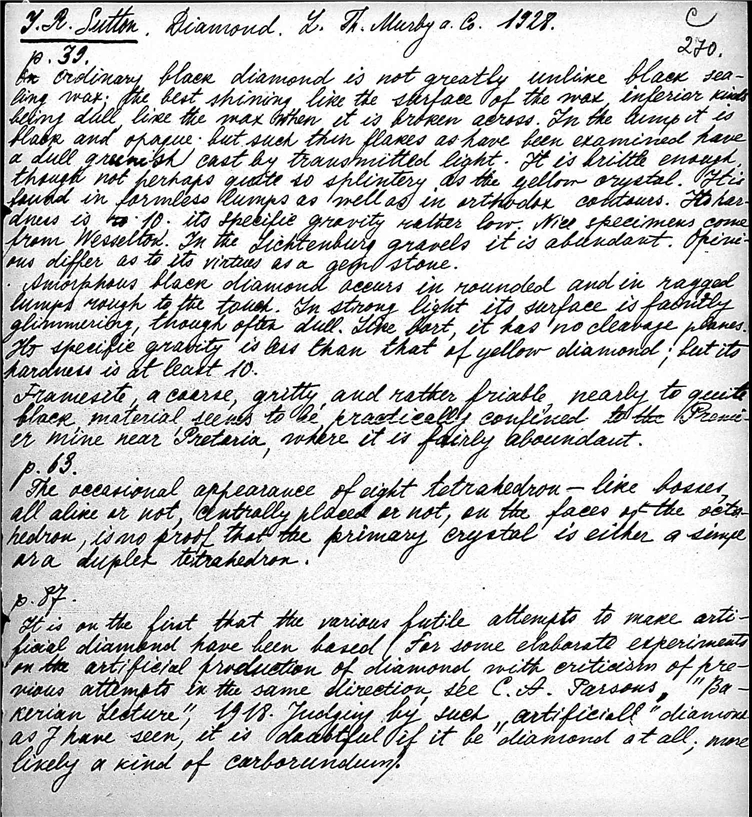 J. R. Sutton. Diamond. L. Th. Murby a. Co. 1928.
C
270.
p. 39.
An ordinary black diamond is not greatly unlike black sea-
ling wax; the best shining like the surface of the wax inferiar kinds
being dull like the wax when it is broken across. In the lump it is
black and opaque but such thin flakes as have been examined have
a dull greenish cast by transmitted light. It is brittle enough,
though not perhaps quite so splintery as the yellow crystal. It is
found in formless lumps as well as in orthodox contours. Its har-
dness is 10. its specific gravity rather low. Nice specimens come
from Wesselton. In the Lichtenburg gravels it is abundant. Opini-
ons differ as to its virtues as a gem stone.
Amorphous black diamond occurs in rounded and in ragged
lumps rough to the touch. In strong light its surface is faintly
glimmering, though often dull. Like bort, it has no cleavage planes.
Its specific gravity is less than that of yellow diamond; but its
hardness is at least 10.
Framesite, a coarse, gritty, and rather friable, nearly to quite
black, material seems to be practically confined to the Premi-
er mine near Pretoria, where it is fairly aboundant.
p. 63.
The occasional appearance of eight tetrahedron-like bosses,
all alike or not, centrally placed or not, on the faces of the octa-
hedron, is no proof that the primary crystal is either a simple
or a duplex tetrahedron.
p. 87.
It is on the first that the various futile attempts to make arti-
ficial diamond have been based (For some elaborate experiments
on the artificial production of diamond with criticism of pre-
vious attempts in the same direction, see C. A. Parsons, "Ba-
kerian Lecture", 1918. Judging by such „artificiall" diamond
as I have seen, it is doubtful if it be "diamond at all; more
likely a kind of carborundum).